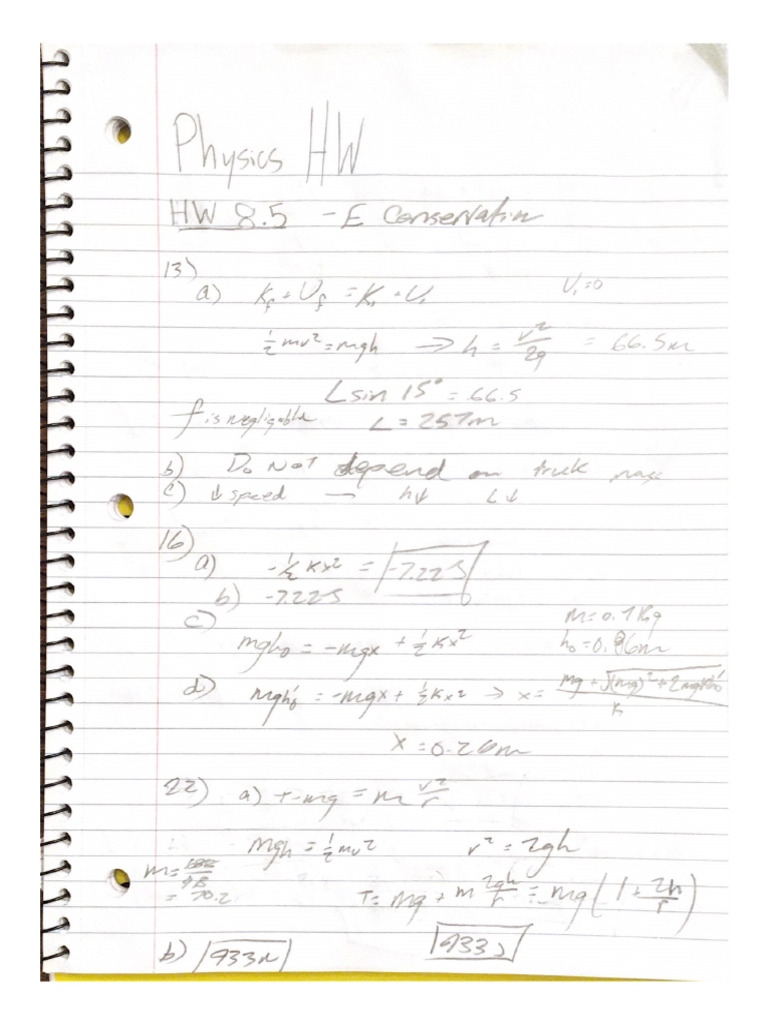 Physics HW
HW 8.5 - E Conservatin
13)
a) K_f + U_f = K_i + U_i U_i = 0
½mv² = mgh → h = v²/2g = 66.5m
L sin 15° = 66.5
f is negligable L = 257m
b) Do Not depend on truck mass
c) ↓ speed — h↓ L↓
16)
a) -½Kx² = -7.22J
b) -7.22J
c) m = 0.7Kg
mgh₀ = -mgx + ½Kx² h₀ = 0.86m
d) mgh₀' = -mgx + ½Kx² → x = mg + √((mg)² + 2mgKh₀') / K
x = 0.26m
22) a) T-mg = m v²/r
mgh = ½mv² v² = 2gh
m = /9.8
= 70.2 T = mg + m 2gh/r = mg(1 + 2h/r)
b) 933N 933J